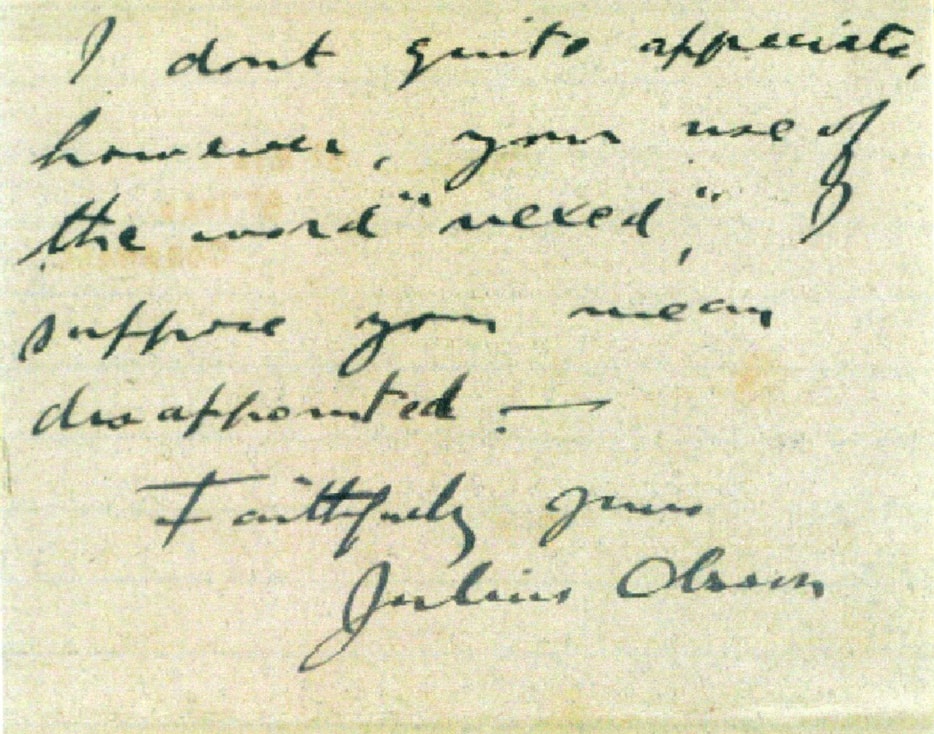 I dont quite appreciate,
however, your use of
the word "vexed", I
suppose you mean
disappointed. —
Faithfully yours
Julius Olsson